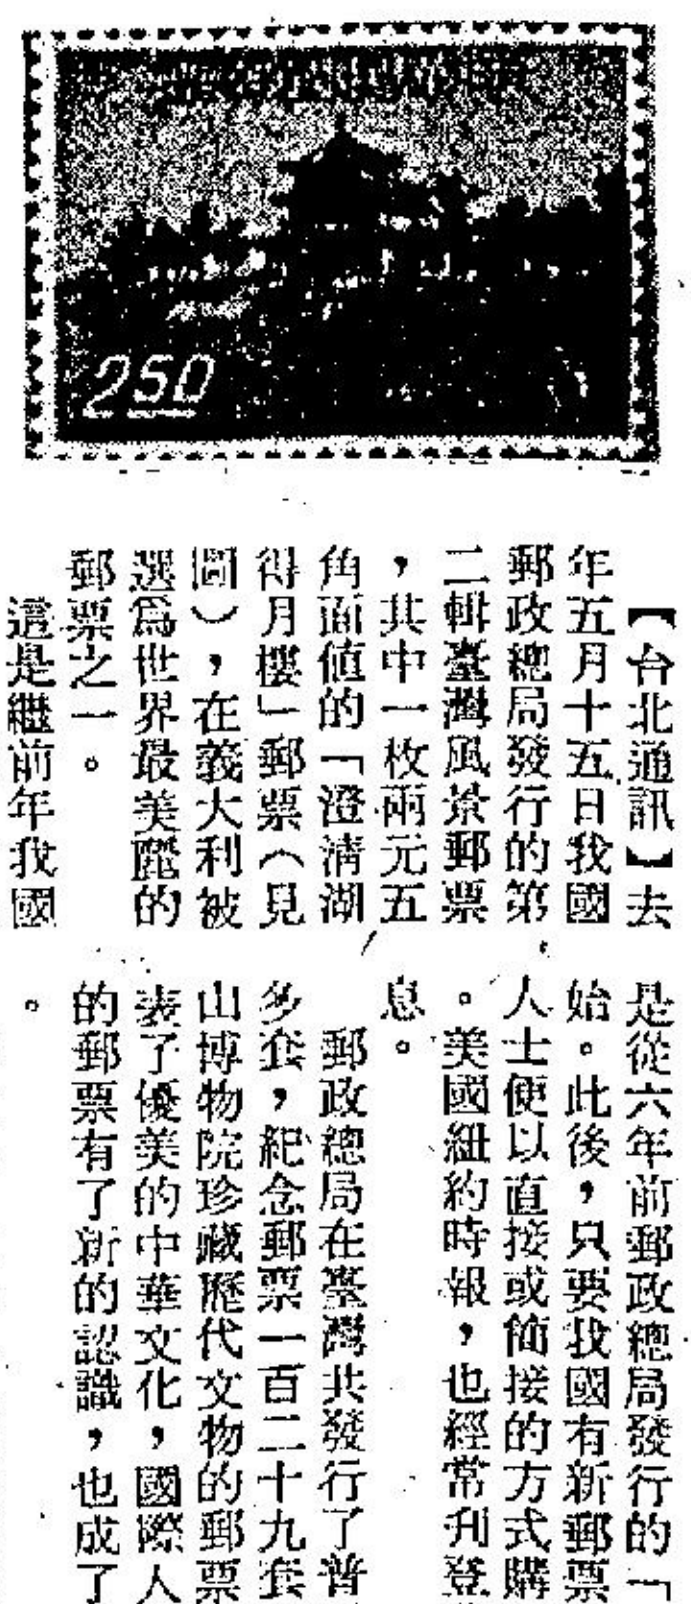 250
【台北通訊】去
年五月十五日我國
郵政總局發行的第
二輯臺灣風景郵票
，其中一枚兩元五
角面值的「澄清湖
得月樓」郵票（見
圖），在義大利被
選爲世界最美麗的
郵票之一。
這是繼前年我國
是從六年前郵政總局發行的「
始。此後，只要我國有新郵票
人士便以直接或簡接的方式購
。美國紐約時報，也經常刋登
息。
郵政總局在臺灣共發行了普
多套，紀念郵票一百二十九套
山博物院珍藏歷代文物的郵票
表了優美的中華文化，國際人
的郵票有了新的認識，也成了
。